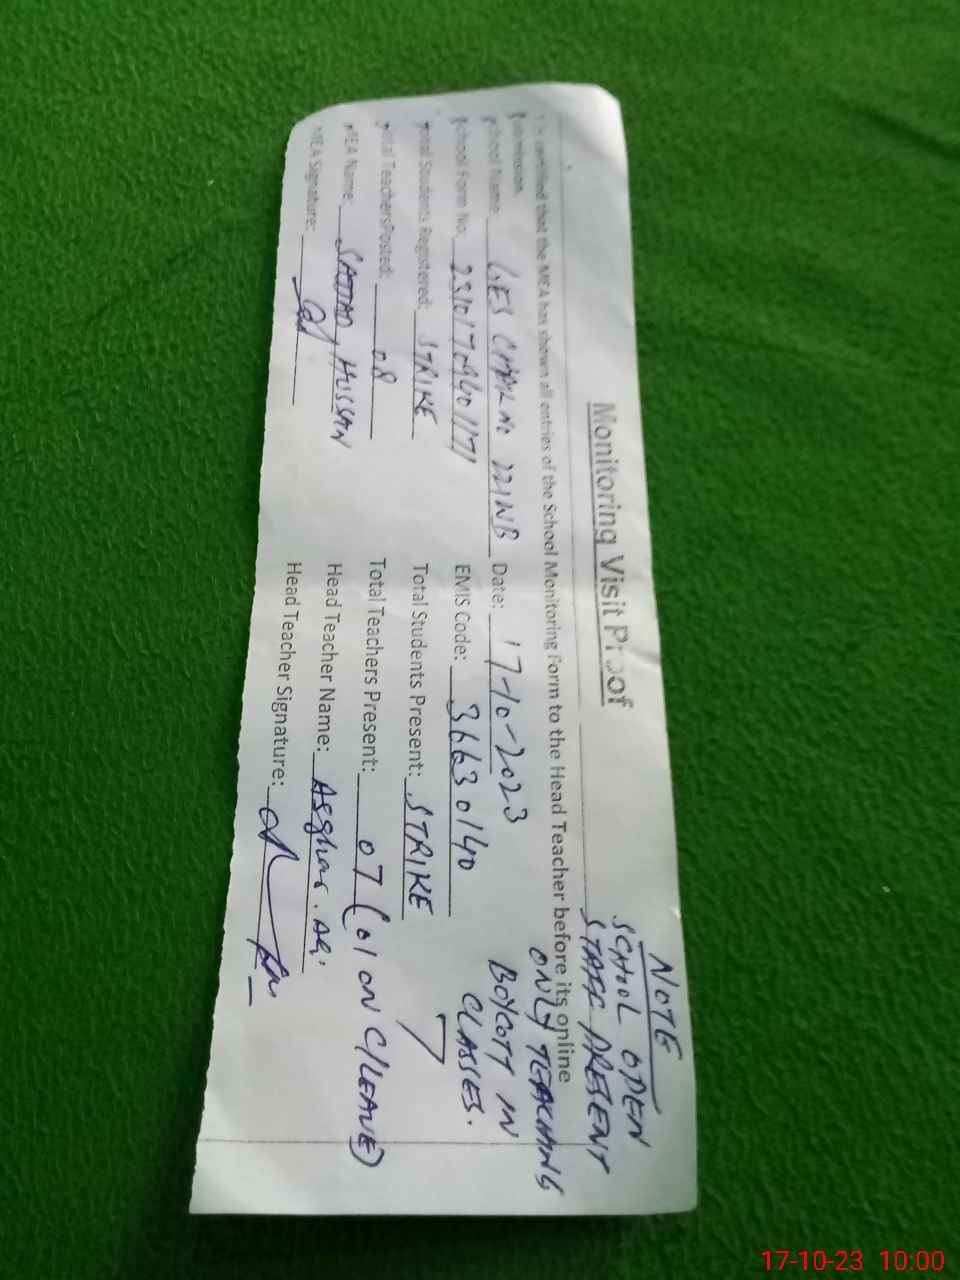 NOTE
SCHOOL OPEN
STAFF PRESENT
ONLY TEACHING
BOYCOTT IN
CLASSES.
Monitoring Visit Proof
certified that the MEA has shown all entries of the School Monitoring Form to the Head Teacher before its online
School Name CHAK NO 221NB Date: 17-10-2023
School Form No. EMIS Code: 36630140
Total Students Registered: STRIKE Total Students Present: STRIKE
Total TeachersPosted: 08 Total Teachers Present: 07 (01 ON C/LEAVE)
MEA Name: SAJJAD HUSSAN Head Teacher Name: Asghar. Ali
MEA Signature: Head Teacher Signature:
17-10-23 10:00